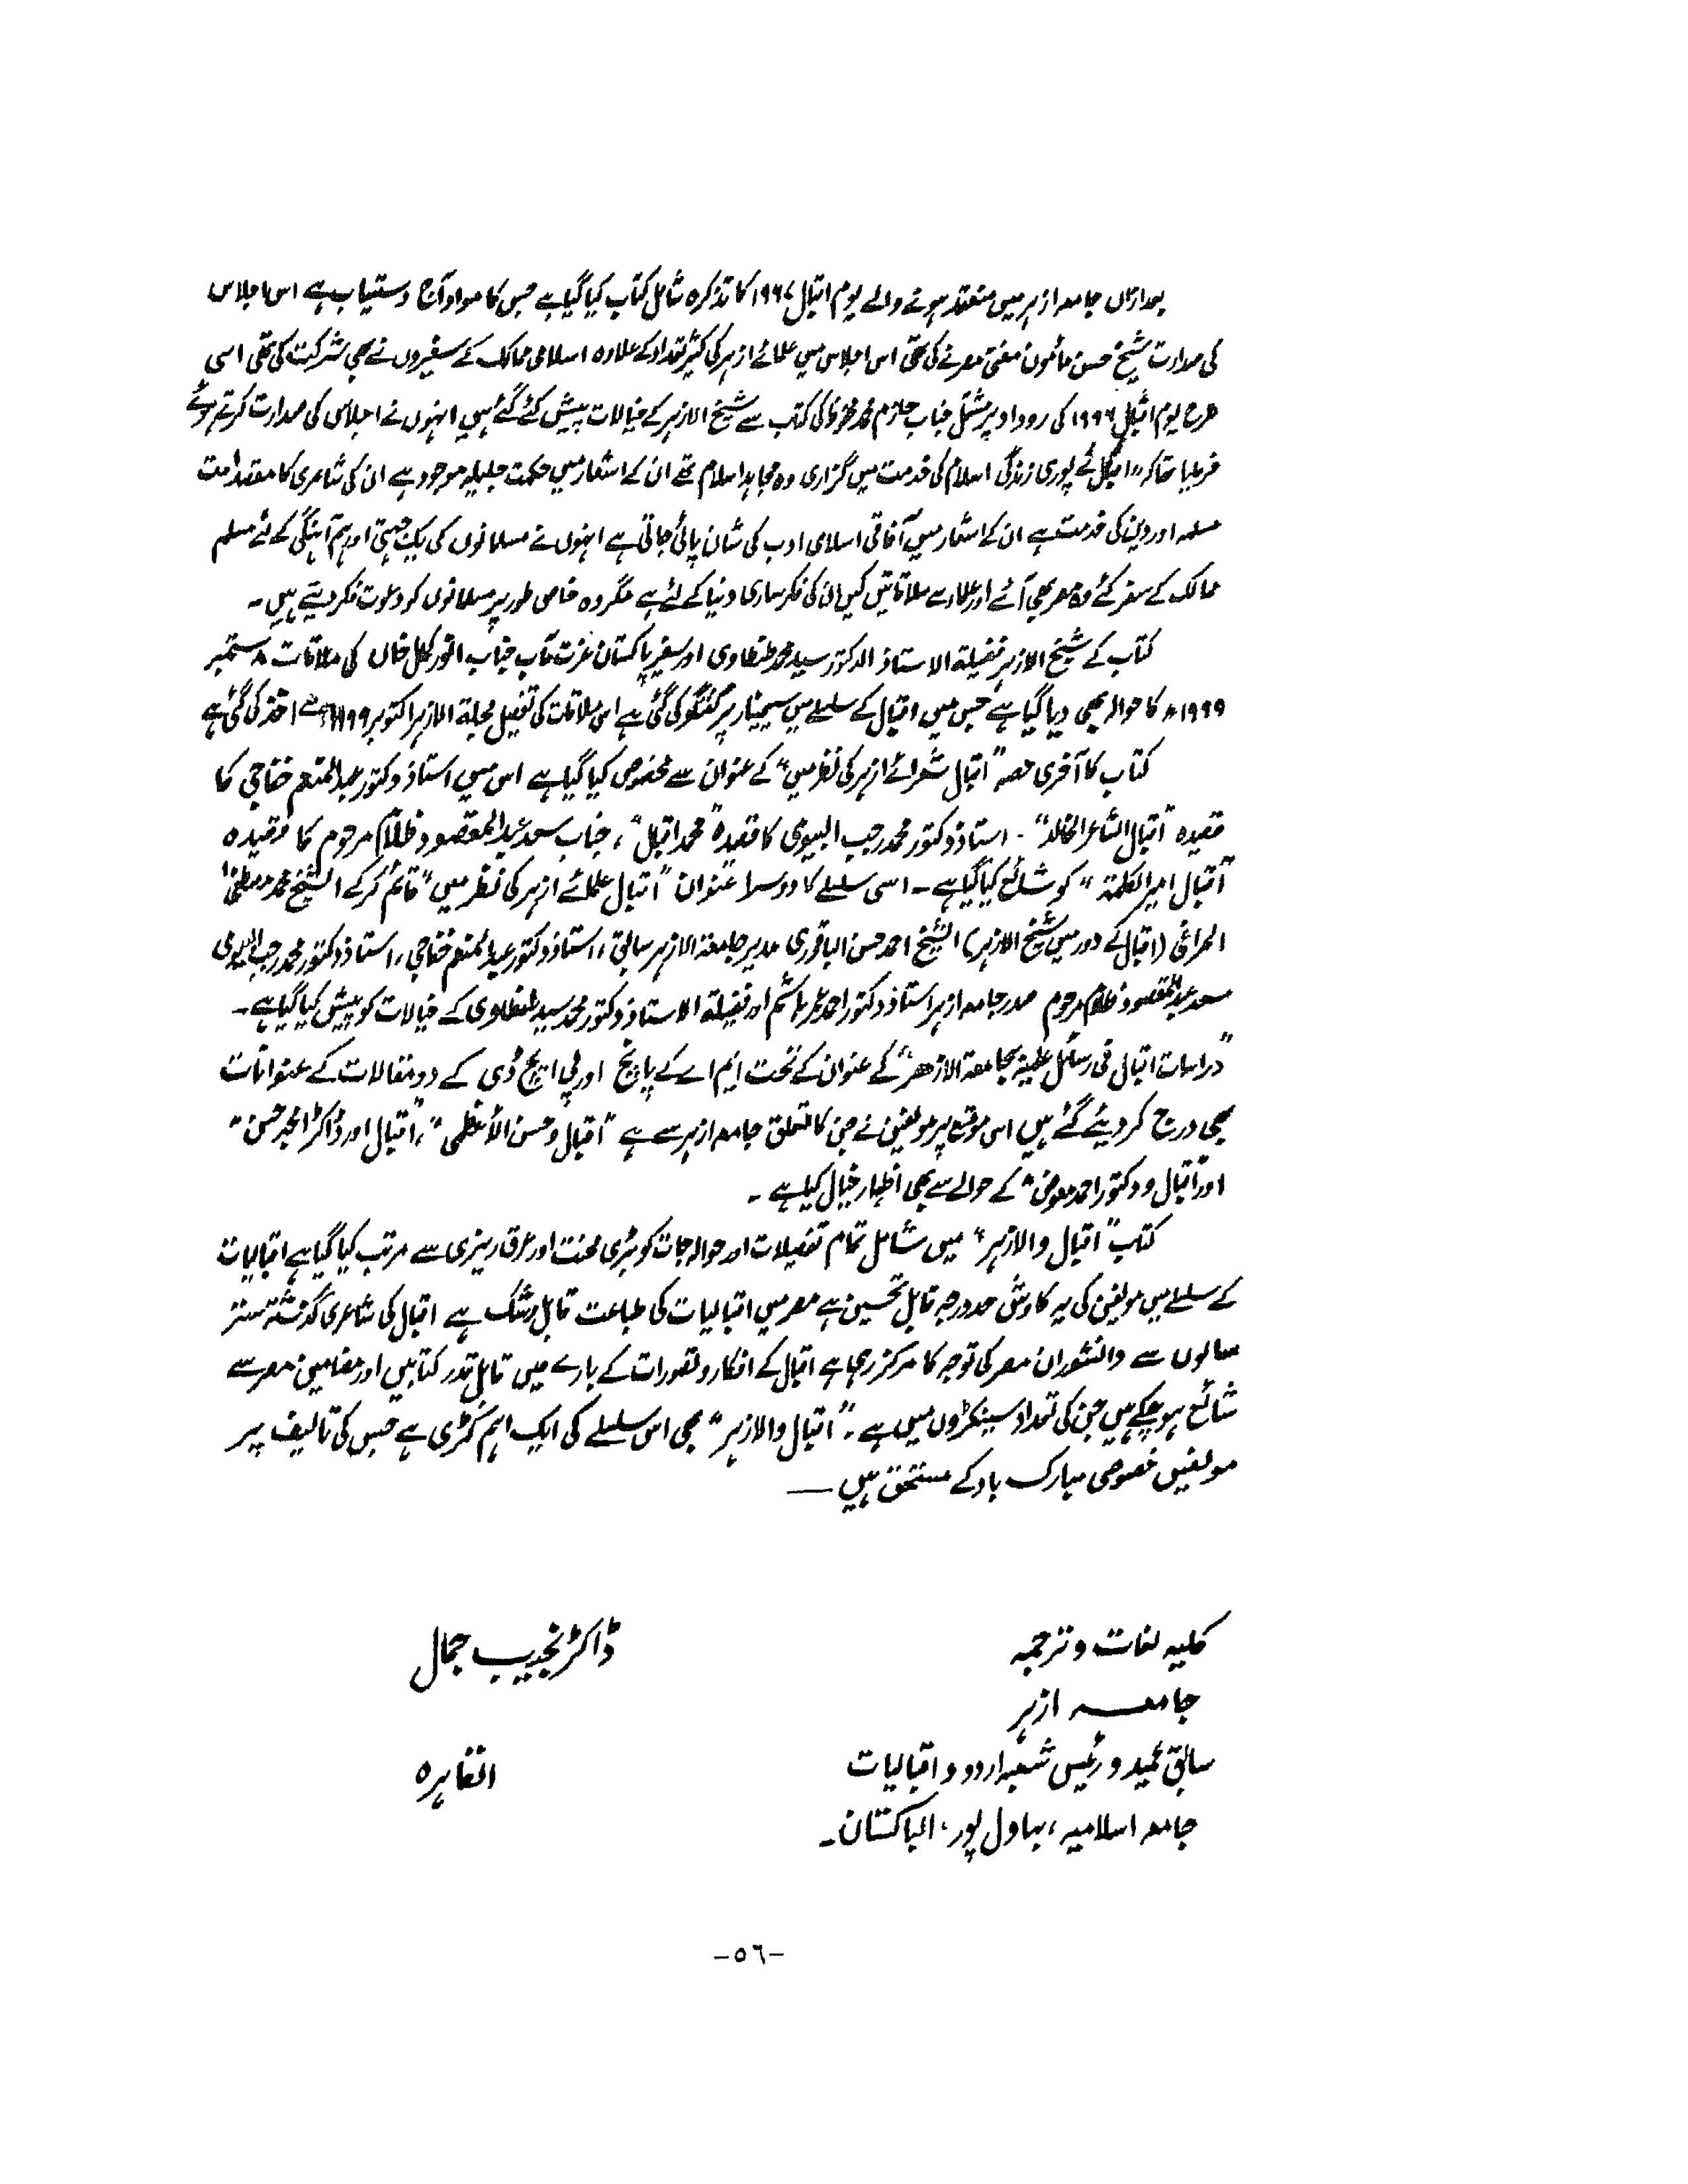 بعدازاں جامعہ ازہر میں منعقد ہونے والے یوم اقبال ۱۹۶۷ کا تذکرہ شامل کتاب کیا گیا ہے جس کا مواد آج دستیاب ہے اس اجلاس
کی صدارت شیخ حسن مأمون مفتی مصر نے کی تھی اس اجلاس میں علمائے ازہر کی کثیر تعداد کے علاوہ اسلامی ممالک کے سفیروں نے بھی شرکت کی تھی اسی
طرح یوم اقبال ۱۹۹۶ کی روداد پر مشتمل جناب حازم محمد محفوظ کی کتب سے شیخ الازہر کے خیالات پیش کئے گئے ہیں انہوں نے اجلاس کی صدارت کرتے ہوئے
فرمایا تھا کہ "اقبال نے پوری زندگی اسلام کی خدمت میں گزاری وہ مجاہد اسلام تھے ان کے اشعار میں حکمت جلیلہ موجود ہے ان کی شاعری کا مقصد امت
مسلمہ اور دین کی خدمت ہے ان کے اشعار میں آفاقی اسلامی ادب کی شان پائی جاتی ہے انہوں نے مسلمانوں کی یک جہتی اور ہم آہنگی کے لئے مسلم
ممالک کے سفر کئے وہ مصر بھی آئے اور علماء سے ملاقاتیں کیں ان کی فکر ساری دنیا کے لئے ہے مگر وہ خاص طور پر مسلمانوں کو دعوت فکر دیتے ہیں۔
کتاب کے شیخ الازہر فضیلۃ الاستاذ الدکتور سید محمد طنطاوی اور سفیر پاکستان عزت مآب جناب انور کمال خاں کی ملاقات ۸ ستمبر
۱۹۹۹ء کا حوالہ بھی دیا گیا ہے جس میں اقبال کے سلسلے میں سیمینار پر گفتگو کی گئی ہے اس ملاقات کی تفصیل مجلۃ الازہر اکتوبر ۱۹۹۹ سے اخذ کی گئی ہے
کتاب کا آخری حصہ "اقبال شعرائے ازہر کی نظر میں" کے عنوان سے مخصوص کیا گیا ہے اس میں استاذ دکتور عبدالمنعم خفاجی کا
قصیدہ "اقبال الشاعر الخالد"۔ استاذ دکتور محمد رجب البیومی کا قصیدہ "محمد اقبال"، جناب سعد عبدالمقصود ظلام مرحوم کا قصیدہ
"اقبال امیر الکلمۃ" کو شائع کیا گیا ہے۔ اسی سلسلے کا دوسرا عنوان "اقبال علمائے ازہر کی نظر میں" قائم کرکے الشیخ محمد مصطفیٰ
المراغی (اقبال کے دور میں شیخ الازہر) الشیخ احمد حسن الباقوری مدیر جامعۃ الازہر سابق، استاذ دکتور عبدالمنعم خفاجی، استاذ دکتور محمد رجب البیومی
سعد عبدالمقصود ظلام مرحوم صدر جامعہ ازہر استاذ دکتور احمد عمر ہاشم اور فضیلۃ الاستاذ دکتور محمد سید طنطاوی کے خیالات کو پیش کیا گیا ہے۔
"دراسات اقبال فی رسائل علمیۃ بجامعۃ الازھر" کے عنوان کے تحت ایم اے کے پانچ اور پی ایچ ڈی کے دو مقالات کے عنوانات
بھی درج کر دیئے گئے ہیں اس موقع پر مولفین نے جن کا تعلق جامعہ ازہر سے ہے "اقبال و حسن الأعظمی"، "اقبال اور ڈاکٹر امجد حسن"
اور "اقبال و دکتور احمد معوض" کے حوالے سے بھی اظہار خیال کیا ہے۔
کتاب "اقبال والازہر" میں شامل تمام تفصیلات اور حوالہ جات کو بڑی محنت اور عرق ریزی سے مرتب کیا گیا ہے اقبالیات
کے سلسلے میں مولفین کی یہ کاوش حد درجہ قابل تحسین ہے مصر میں اقبالیات کی طباعت قابل رشک ہے اقبال کی شاعری گذشتہ ستر
سالوں سے دانشوران مصر کی توجہ کا مرکز رہی ہے اقبال کے افکار و تصورات کے بارے میں قابل قدر کتابیں اور مضامین مصر سے
شائع ہو چکے ہیں جن کی تعداد سینکڑوں میں ہے۔ "اقبال والازہر" بھی اس سلسلے کی ایک اہم کڑی ہے جس کی تالیف پر
مولفین خصوصی مبارک باد کے مستحق ہیں —
کلیہ لغات و ترجمہ ڈاکٹر نجیب جمال
جامعہ ازہر
سابق عمید و رئیس شعبہ اردو و اقبالیات القاہرہ
جامعہ اسلامیہ، بہاول پور، الباکستان۔
-٥٦-